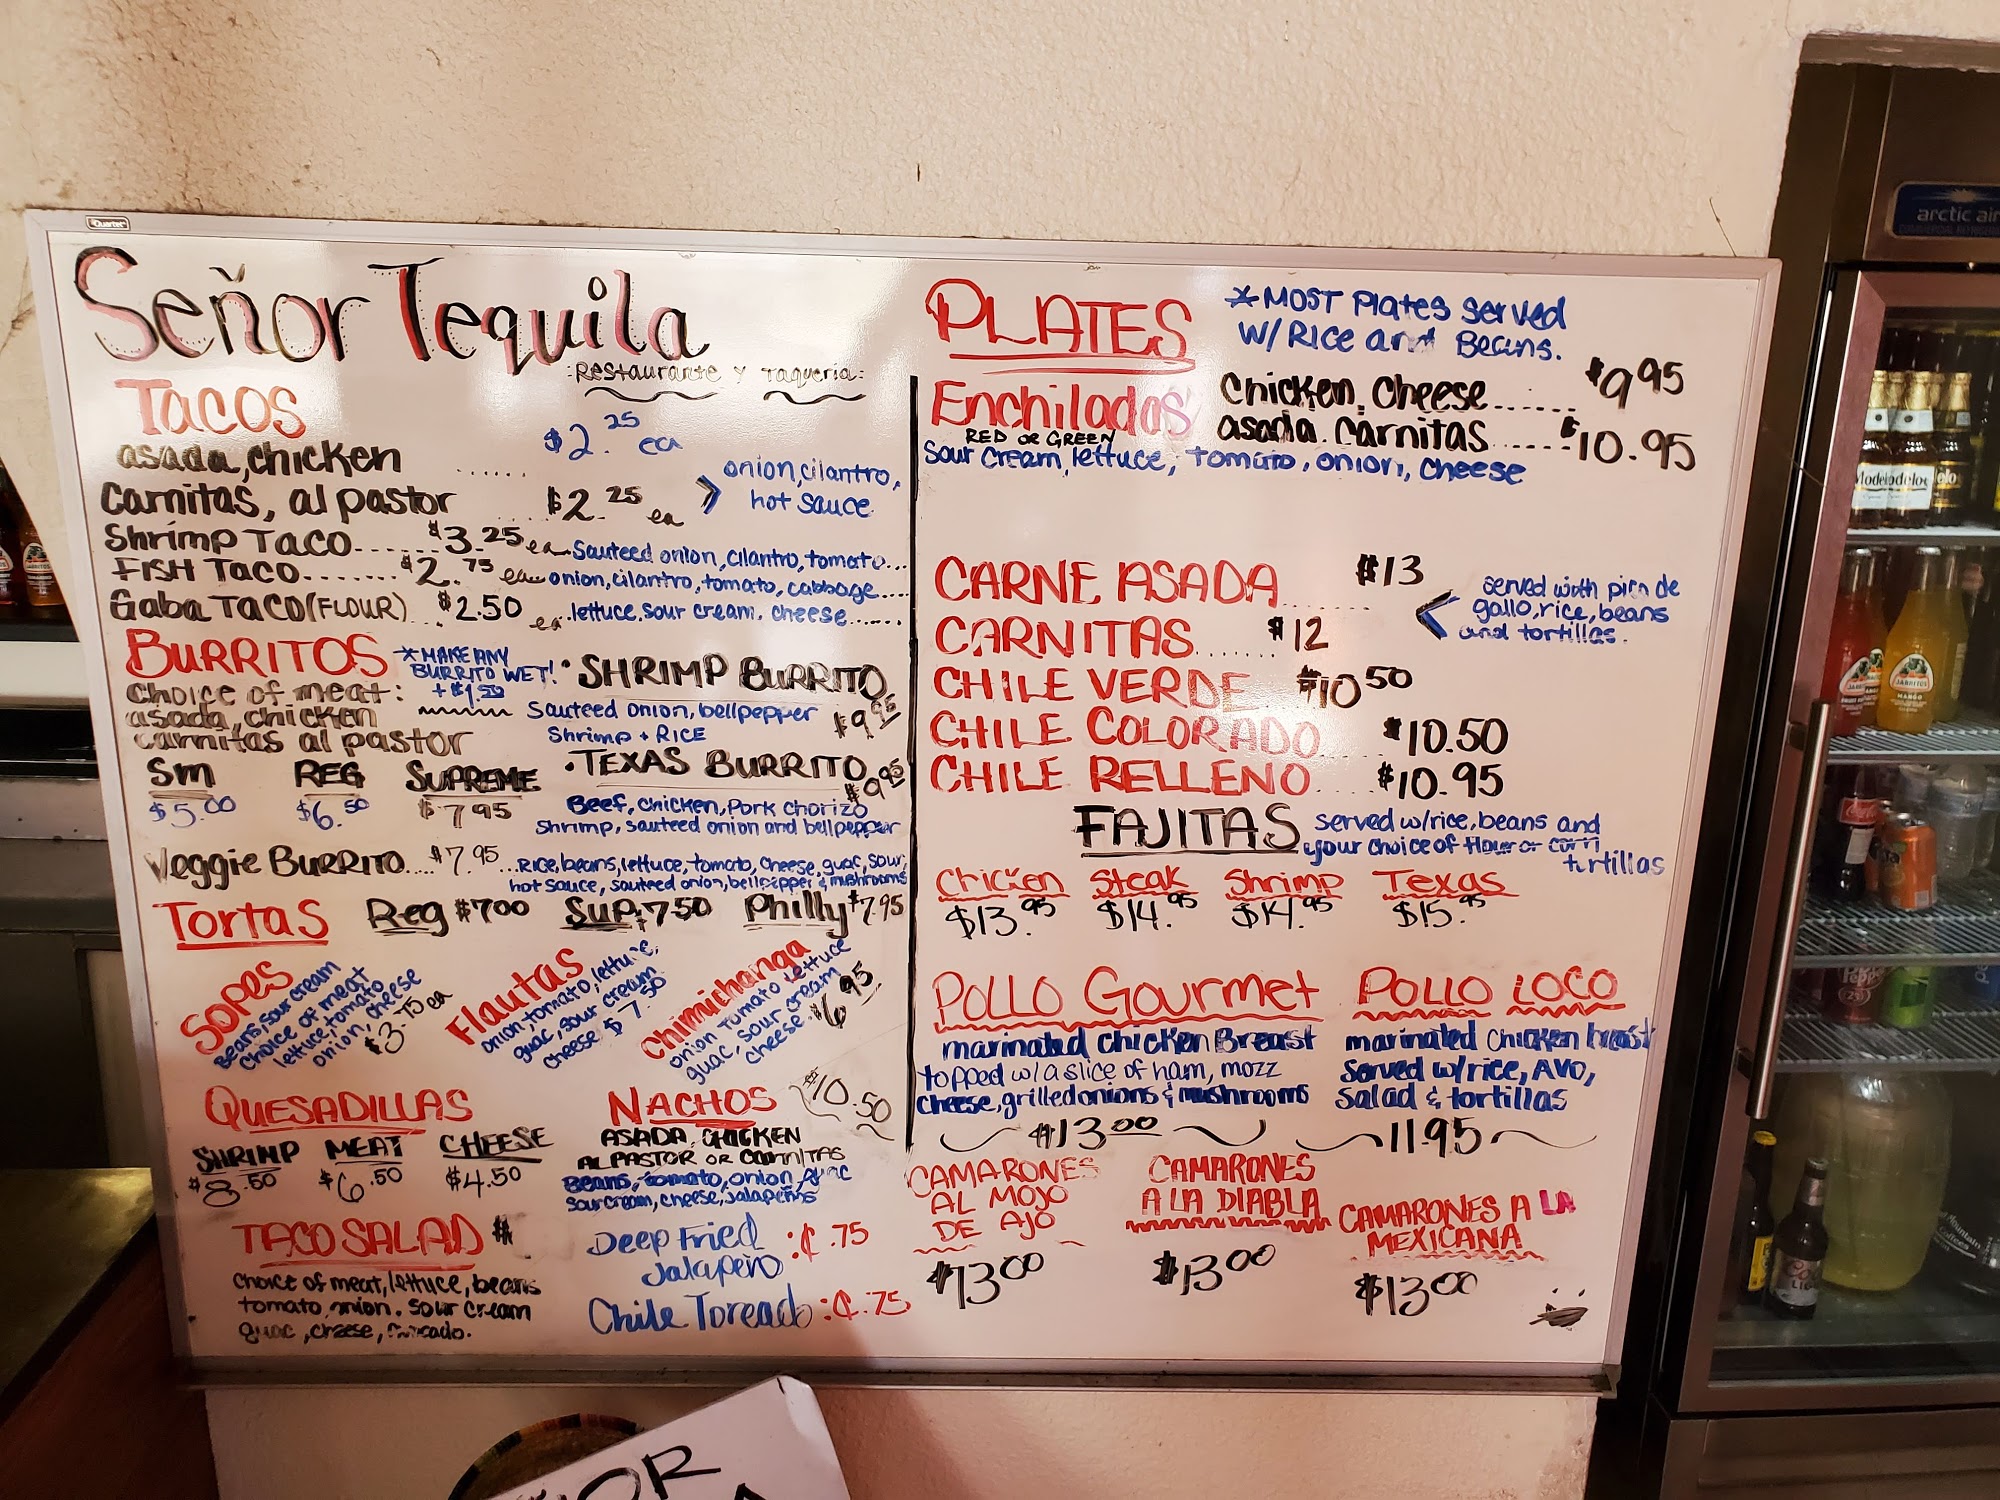 Quartet
Señor Tequila
:Restaurante y Taqueria:
Tacos
asada, chicken ...... $2.25 ea
Carnitas, al pastor ..... $2.25 ea
> onion, cilantro,
hot sauce
Shrimp Taco..... $3.25 ea..Sauteed onion, cilantro, tomato...
Fish Taco....... $2.75 ea onion, cilantro, tomato, cabbage....
Gaba Taco (Flour)... $2.50 ea..lettuce, sour cream, cheese......
Burritos
* Make any
Burrito wet!
+
choice of meat:
asada, chicken
carnitas al pastor
Sm Reg Supreme
$5.00 $6.50 $7.95
• Shrimp Burrito
Sauteed onion, bellpepper $9.95
Shrimp + Rice
• Texas Burrito
$9.95
Beef, Chicken, Pork Chorizo
Shrimp, sauteed onion and bellpepper
Veggie Burrito.... $7.95 ...Rice, beans, lettuce, tomato, cheese, guac, sour,
hot sauce, sauteed onion, bellpepper & mushrooms
Tortas Reg $7.00 Sup $7.50 Philly $7.95
Sopes
Beans, sour cream
choice of meat
lettuce, tomato
onion, cheese
$3.75 ea
Flautas
onion, tomato, lettuce,
guac, sour cream
cheese $7.50
Chimichanga
onion tomato lettuce
guac, sour cream
cheese. $6.95
Quesadillas
Shrimp Meat Cheese
$8.50 $6.50 $4.50
Nachos $10.50
Asada, Chicken
Al pastor or
Beans, tomato, onion, guac
sour cream, cheese, jalapeños
Taco Salad $
choice of meat, lettuce, beans
tomato, onion, sour cream
guac, cheese,
Deep Fried :¢.75
Jalapeño
Chile Toreado :¢.75
Plates
* Most Plates served
w/ Rice and Beans.
Enchiladas Chicken, Cheese...... $9.95
Red or Green asada, Carnitas..... $10.95
Sour cream, lettuce, tomato, onion, cheese
Carne Asada ........ $13
Carnitas ....... $12
< served with pico de
gallo, rice, beans
and tortillas.
Chile Verde .. $10.50
Chile Colorado .... $10.50
Chile Relleno .... $10.95
Fajitas served w/rice, beans and
your choice of flour or corn
tortillas
Chicken Steak Shrimp Texas
$13.95 $14.95 $14.95 $15.95
Pollo Gourmet
marinated chicken Breast
topped w/ a slice of ham, mozz
cheese, grilled onions & mushrooms
$13.00
Pollo Loco
marinated chicken breast
Served w/rice, Avo,
Salad & tortillas
11.95
Camarones
al Mojo
de Ajo
$13.00
Camarones
a la Diabla
$13.00
Camarones a la
Mexicana
$13.00
arctic air
Modelo
Modelo
Jarritos
Jarritos
Mango